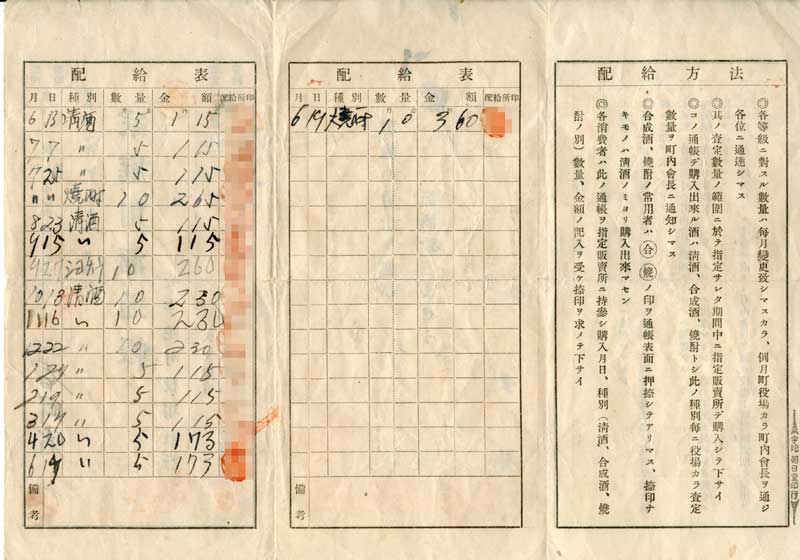 配給方法
◎各等級ニ對スル數量ハ毎月變更致シマスカラ、例月町役場カラ町内會長ヲ通ジ
各位ニ通達シマス
◎其ノ査定數量ノ範圍ニ於テ指定サレタ期間中ニ指定販賣所デ購入シテ下サイ
◎コノ通帳デ購入出來ル酒ハ清酒、合成酒、燒酎トシ此ノ種別毎ニ役場カラ査定
數量ヲ町内會長ニ通知シマス
◎合成酒、燒酎ノ常用者ハ合燒ノ印ヲ通帳表面ニ押捺シテアリマス、捺印ナ
キモノハ清酒ノミヨリ購入出來マセン
◎各消費者ハ此ノ通帳ヲ指定販賣所ニ持參シ購入月日、種別(清酒、合成酒、燒
酎ノ別)數量、金額ノ記入ヲ受ケ捺印ヲ求メテ下サイ
配給表
月日 種別 數量 金額 配給所印
6 19 燒酎 10 3 60
備考
配給表
月日 種別 數量 金額 配給所印
6 13 清酒 5 1 15
7 7 〃 5 1 15
7 25 〃 5 1 15
〃 〃 燒酎 10 2 65
8 23 清酒 5 1 15
9 15 〃 5 1 15
9 27 10 2 60
10 18 清酒 10 2 30
11 16 〃 10 2 30
12 22 〃 10 2 30
1 24 〃 5 1 15
2 19 〃 5 1 15
3 17 〃 5 1 15
4 20 〃 5 1 73
6 19 〃 5 1 73
備考